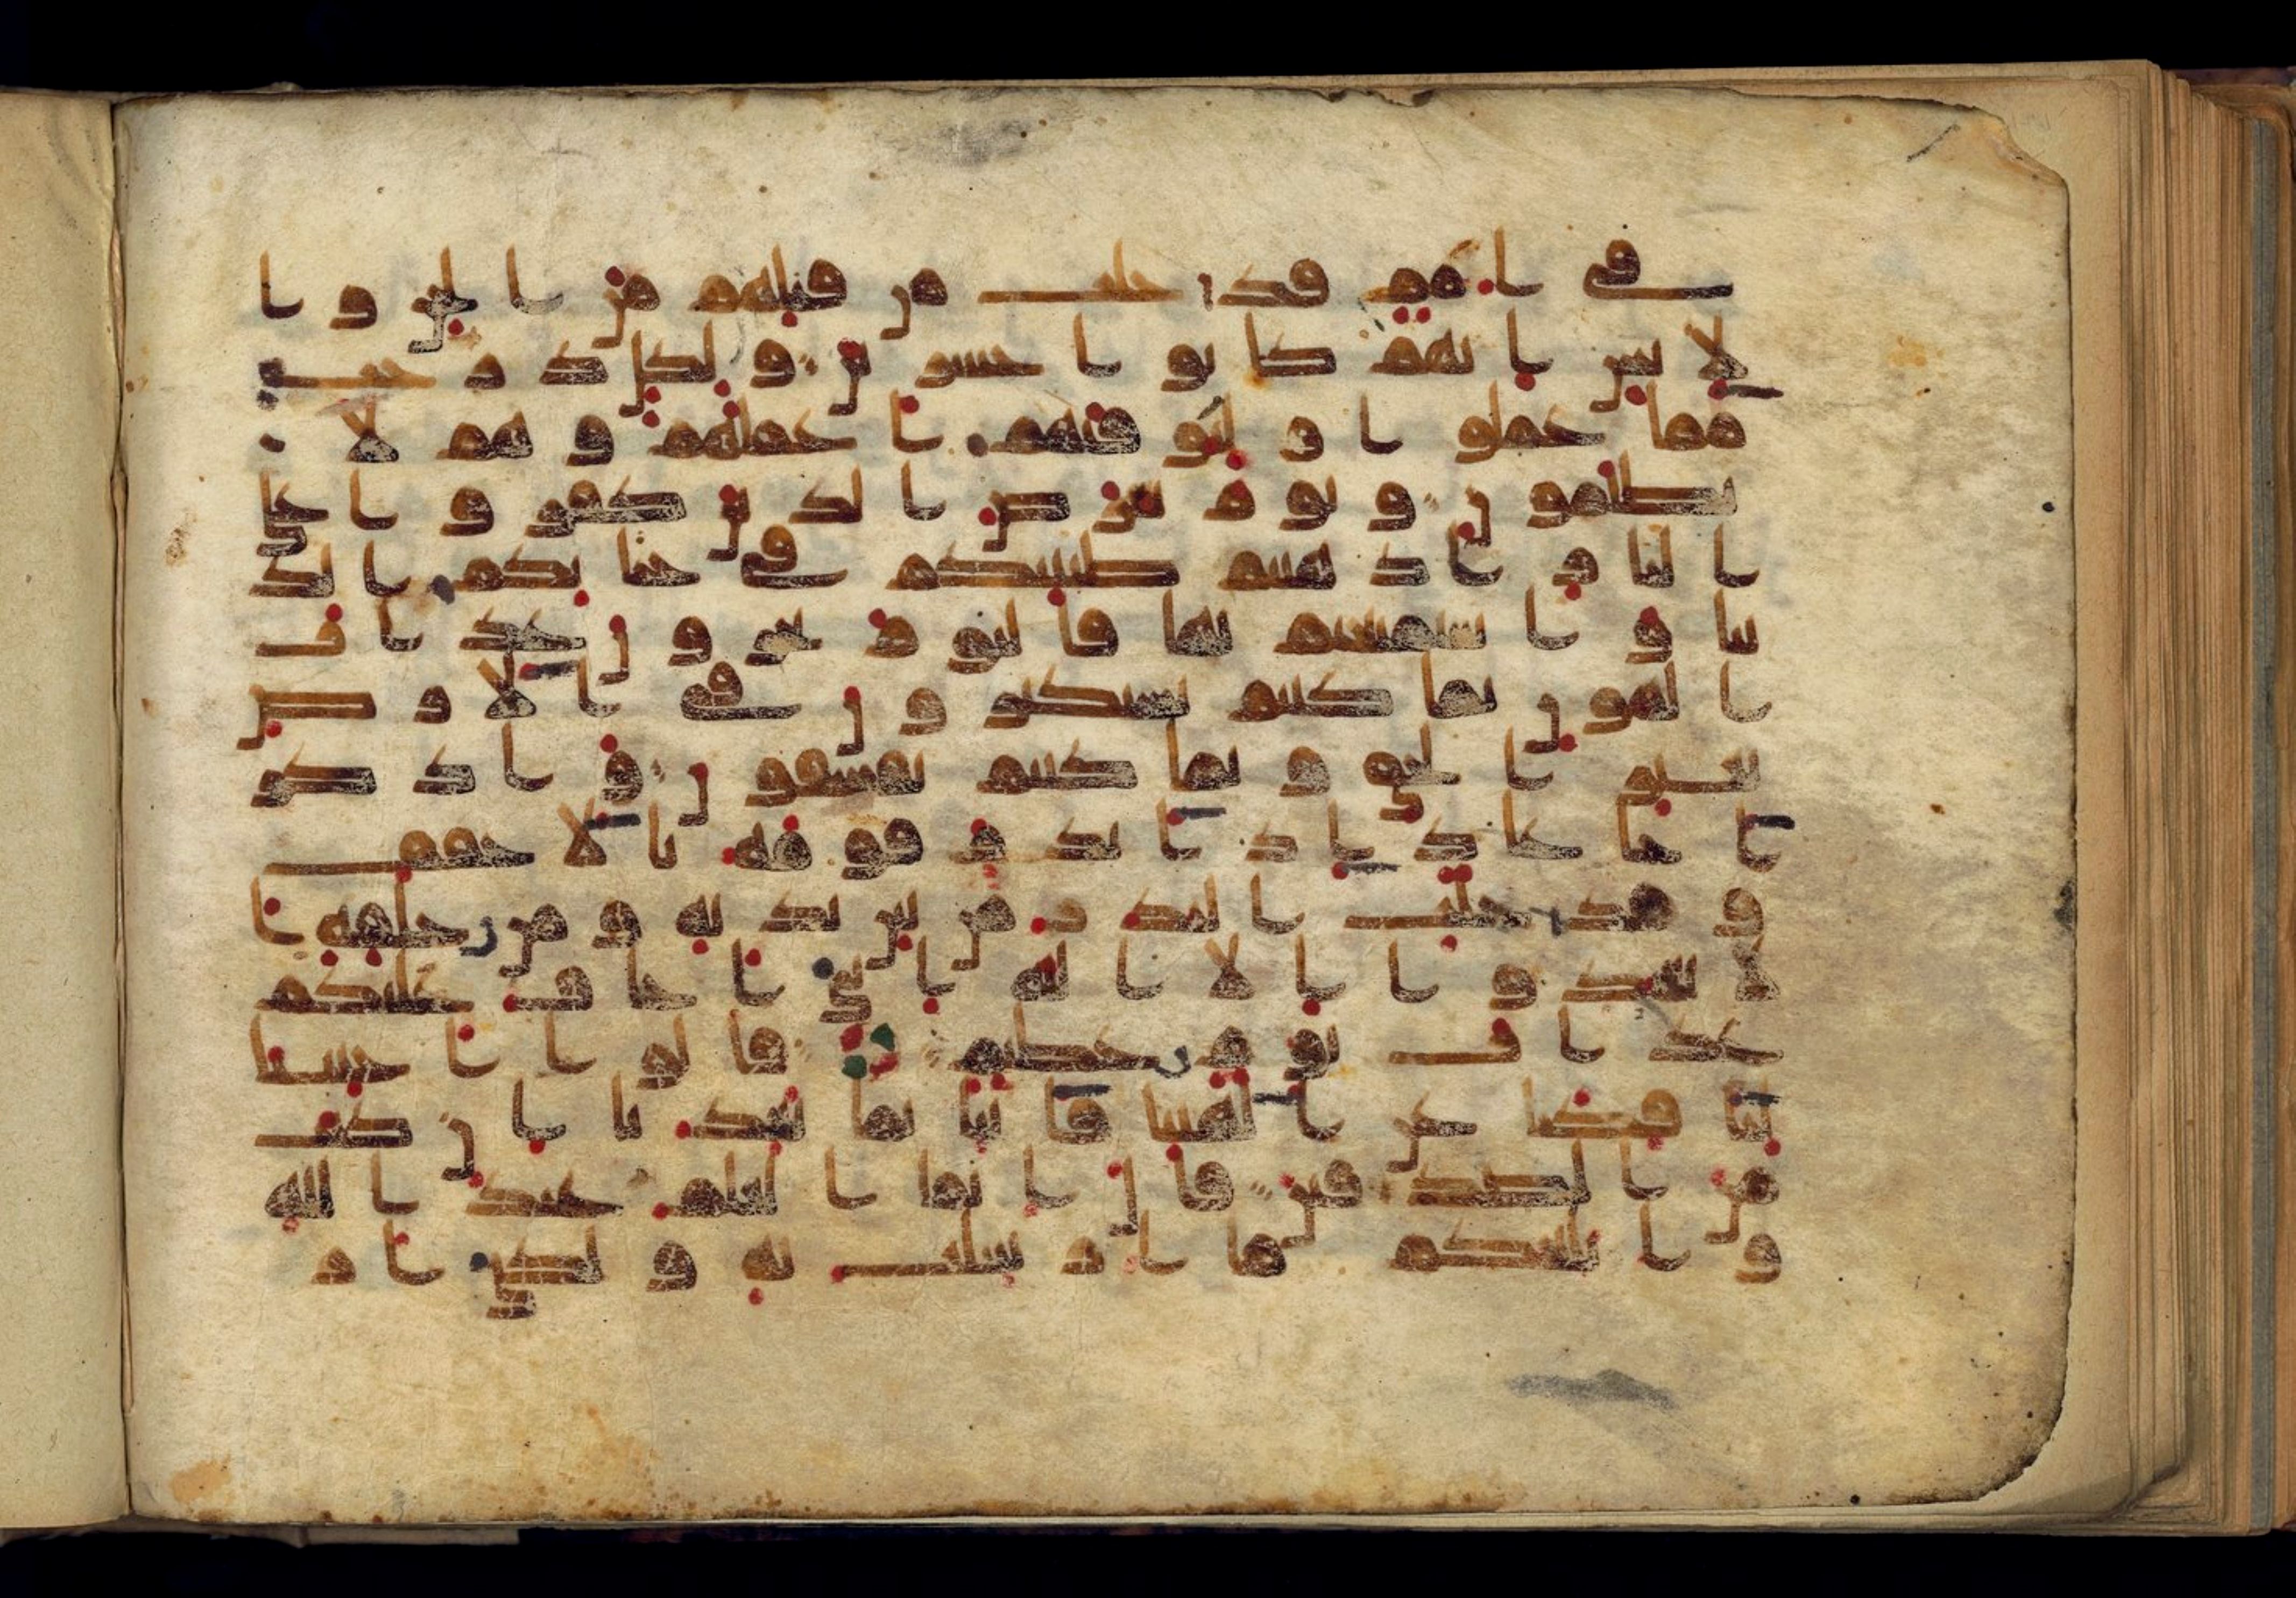 في امم قد خلت من قبلهم من الجن وا
لانس انهم كانوا خسرين ولكل درجت
مما عملوا وليوفيهم اعملهم وهم لا
يظلمون ويوم يعرض الذين كفروا على
النار اذهبتم طيبتكم في حياتكم الد
نيا واستمتعتم بها فاليوم تجزون عذاب
الهون بما كنتم تستكبرون في الارض
بغير الحق وبما كنتم تفسقون واذكر
اخا عاد اذ انذر قومه بالاحقف
وقد خلت النذر من بين يديه ومن خلفه ا
لا تعبدوا الا الله اني اخاف عليكم
عذاب يوم عظيم قالوا اجئتنا
لتافكنا عن الهتنا فاتنا بما تعدنا ان كنت
من الصدقين قال انما العلم عند الله
وابلغكم ما ارسلت به ولكني ار